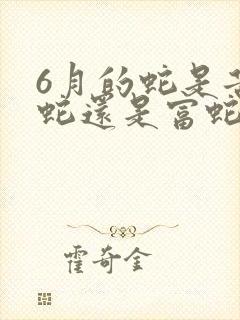 6月的蛇是
蛇還是富蛇
霍奇金